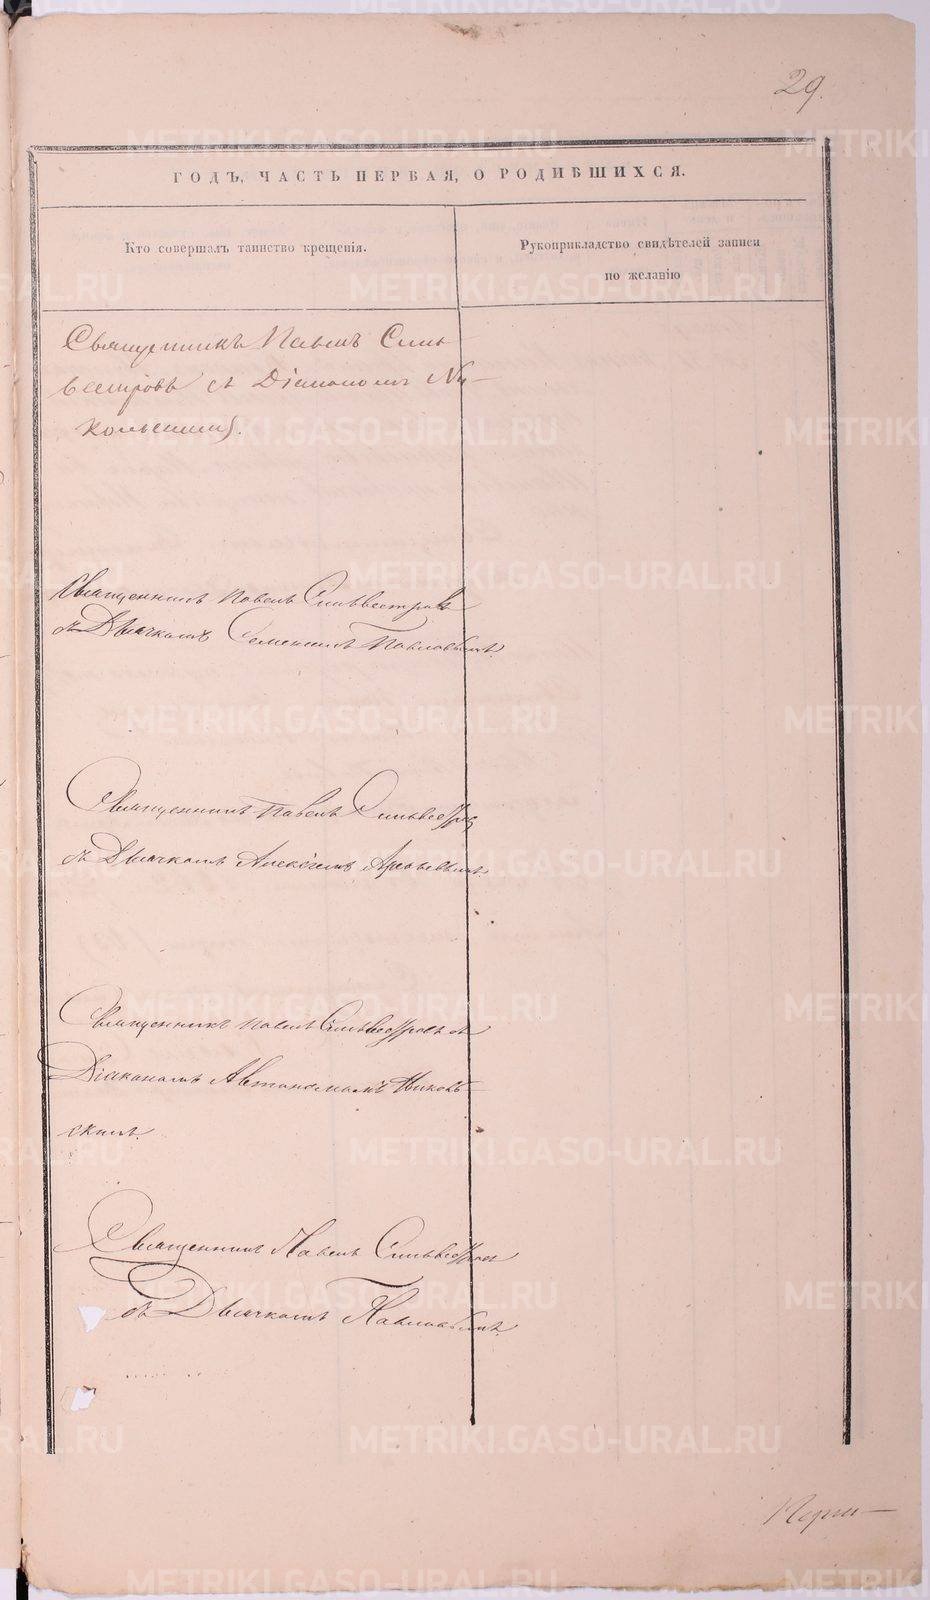 29.
ГОДЪ, ЧАСТЬ ПЕРВАЯ, О РОДИВШИХСЯ.
Кто совершалъ таинство крещенія.
Рукоприкладство свидѣтелей записи
по желанію
Священникъ Павелъ Силь
вестровъ съ Діакономъ Ни-
кольскимъ.
Священникъ Павелъ Сильвестровъ
съ Дьячкомъ Павловымъ.
Священникъ Павелъ Сильвестров
съ Дьячкомъ Алексѣемъ
Священникъ Павелъ Сильвестровъ съ
Діакономъ Автономомъ
скимъ.
Священникъ Павелъ Сильвестров
съ Дьячкомъ Павловымъ.
METRIKI.GASO-URAL.RU